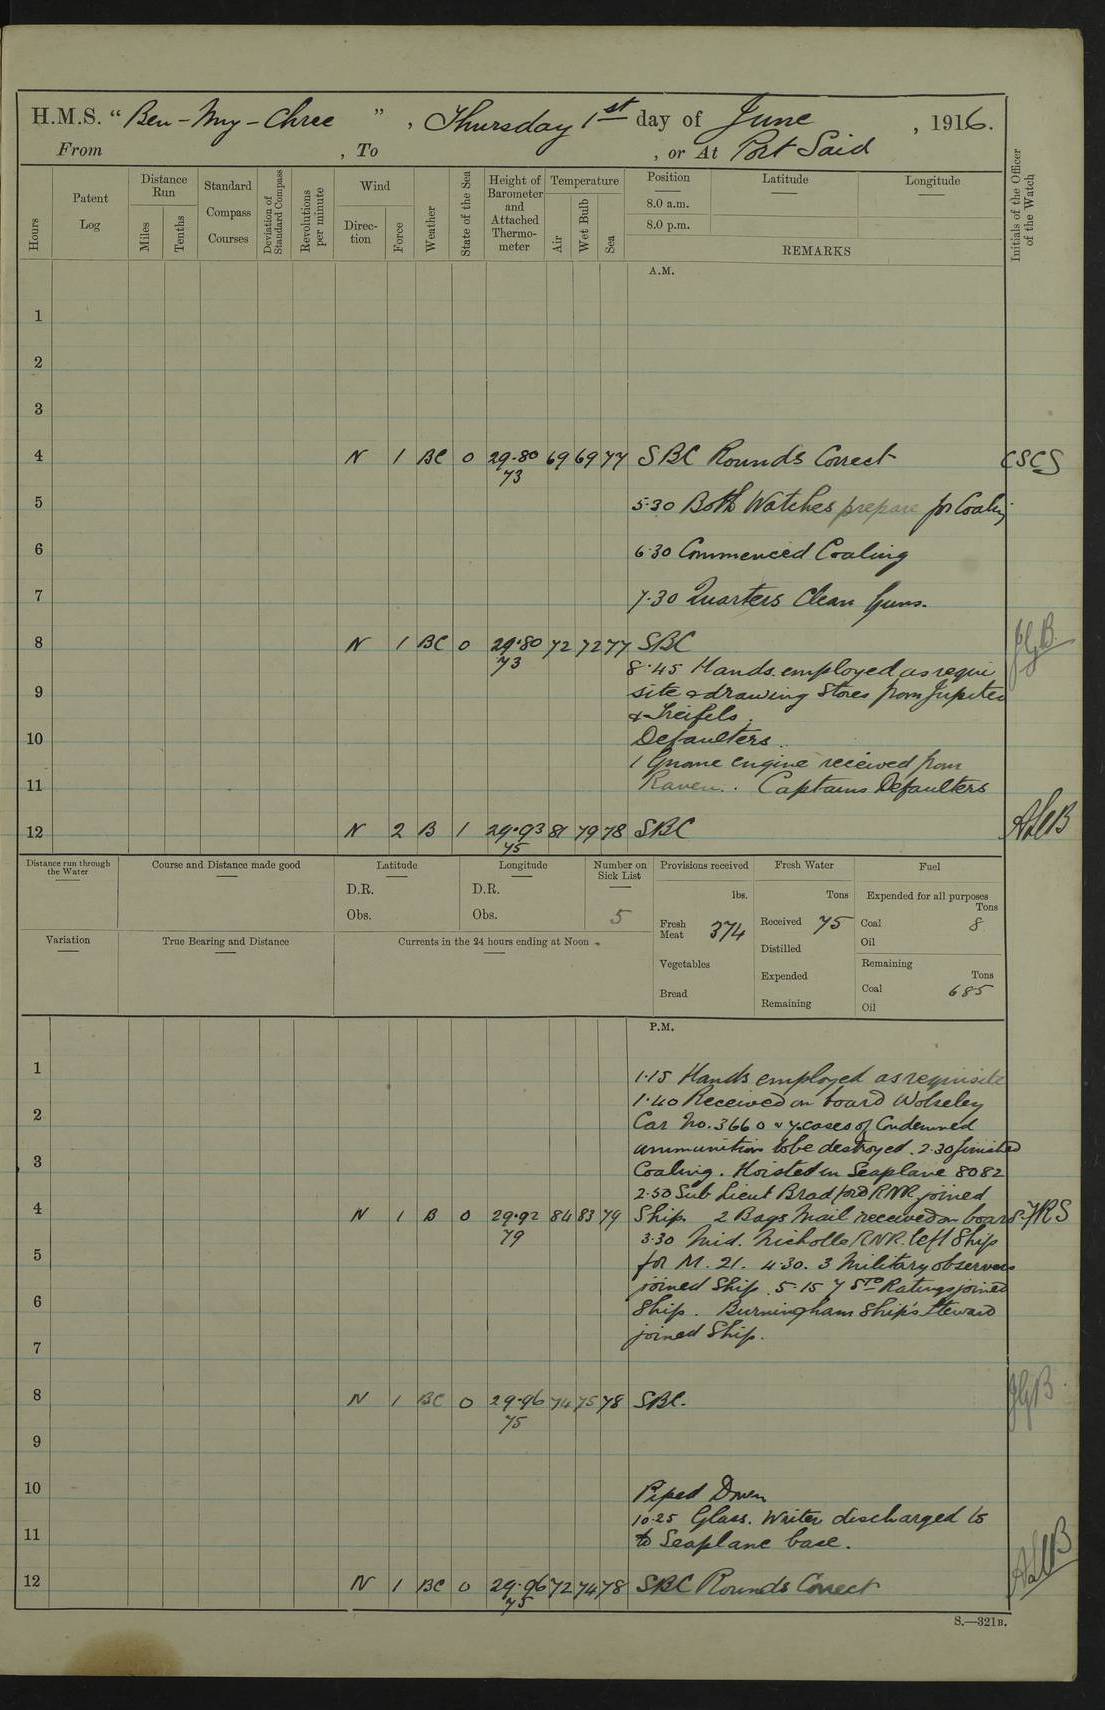 H.M.S. “Ben-My-Chree”, Thursday 1st day of June, 1916.
From , To , or At Port Said
Hours
Patent Log
Distance Run
Miles
Tenths
Standard Compass Courses
Deviation of Standard Compass
Revolutions per minute
Wind
Direction
Force
Weather
State of the Sea
Height of Barometer and Attached Thermometer
Temperature
Air
Wet Bulb
Sea
Position
8.0 a.m.
8.0 p.m.
Latitude
Longitude
REMARKS
Initials of the Officer of the Watch
A.M.
1
2
3
4 N 1 BC 0 29.80 69 69 77 SBC Rounds Correct CSCS
73
5 5.30 Both Watches prepare for Coaling
6 6.30 Commenced Coaling
7 7.30 Quarters Clean Guns.
8 N 1 BC 0 29.80 72 72 77 SBC JGB
73
8.45 Hands employed as requi
9 site & drawing Stores from Jupiter
&
10 Defaulters.
1 Gnome engine received from
11 Raven. Captains Defaulters
12 N 2 B 1 29.93 81 79 78 SBC
75
Distance run through the Water
Course and Distance made good
Latitude
D.R.
Obs.
Longitude
D.R.
Obs.
Number on Sick List
5
Provisions received
lbs.
Fresh Meat 374
Vegetables
Bread
Fresh Water
Tons
Received 75
Distilled
Expended
Remaining
Fuel
Expended for all purposes
Tons
Coal 8
Oil
Remaining
Tons
Coal 685
Oil
Variation
True Bearing and Distance
Currents in the 24 hours ending at Noon
P.M.
1 1.15 Hands employed as requisite
1.40 Received on board Wolseley
2 Car No. 3660 & 7 cases of Condemned
ammunition to be destroyed. 2.30 finished
3 Coaling. Hoisted in Seaplane 8082
2.50 Sub Lieut Bradford RNR joined
4 N 1 B 0 29.92 84 83 79 Ship. 2 Bags Mail received on board
79
3.30 Mid. Nicholls RNR. left Ship
5 for M. 21. 4.30. 3 Military observers
joined Ship. 5.15 7 Ratings joined
6 Ship. Burningham Ship's Steward
7 joined Ship.
8 N 1 BC 0 29.96 74 75 78 SBC. JGB
75
9
10 Piped Down
10.25 Glass. Writer discharged to
11 to Seaplane base.
12 N 1 BC 0 29.96 72 74 78 SBC Rounds Correct
75
S.—321B.